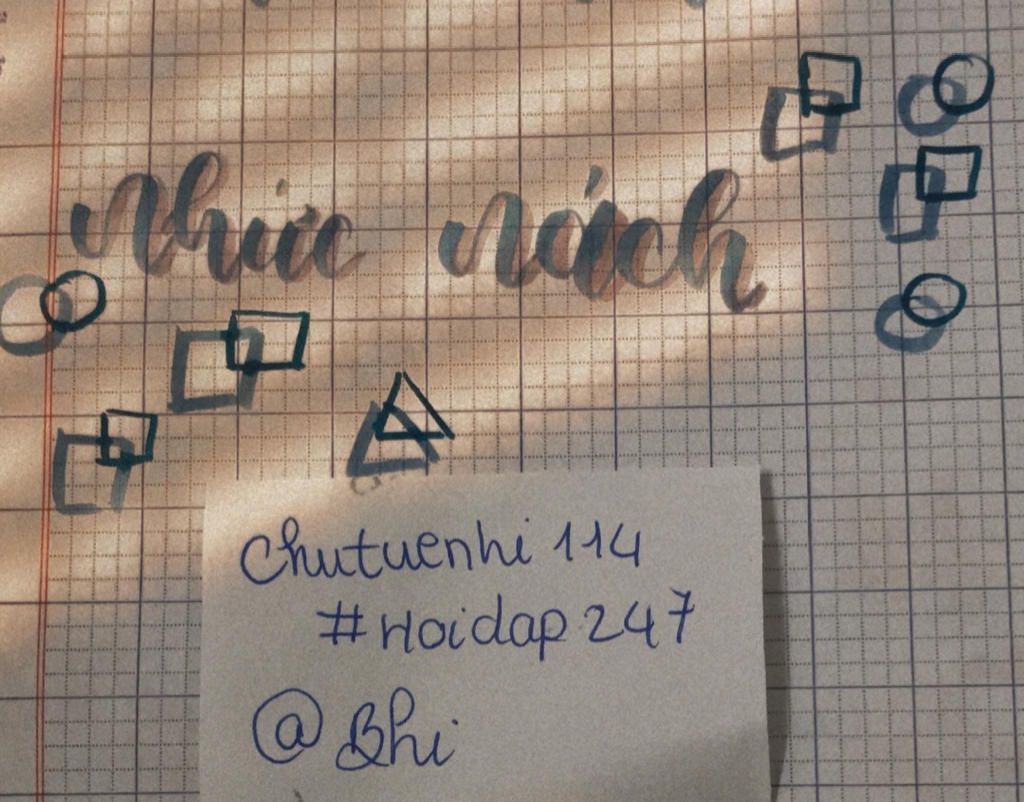 Nhức nách
Chutuenhi 114
#Hoidap 247
@Bhi